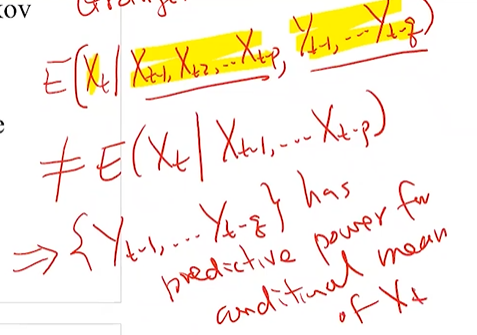 kov
E(X_t | X_{t-1}, X_{t-2}, ... X_{t-p}, Y_{t-1}, ... Y_{t-q})
≠ E(X_t | X_{t-1}, ... X_{t-p})
⇒ {Y_{t-1}, ... Y_{t-q}} has
predictive power for
conditional mean
of X_t
e